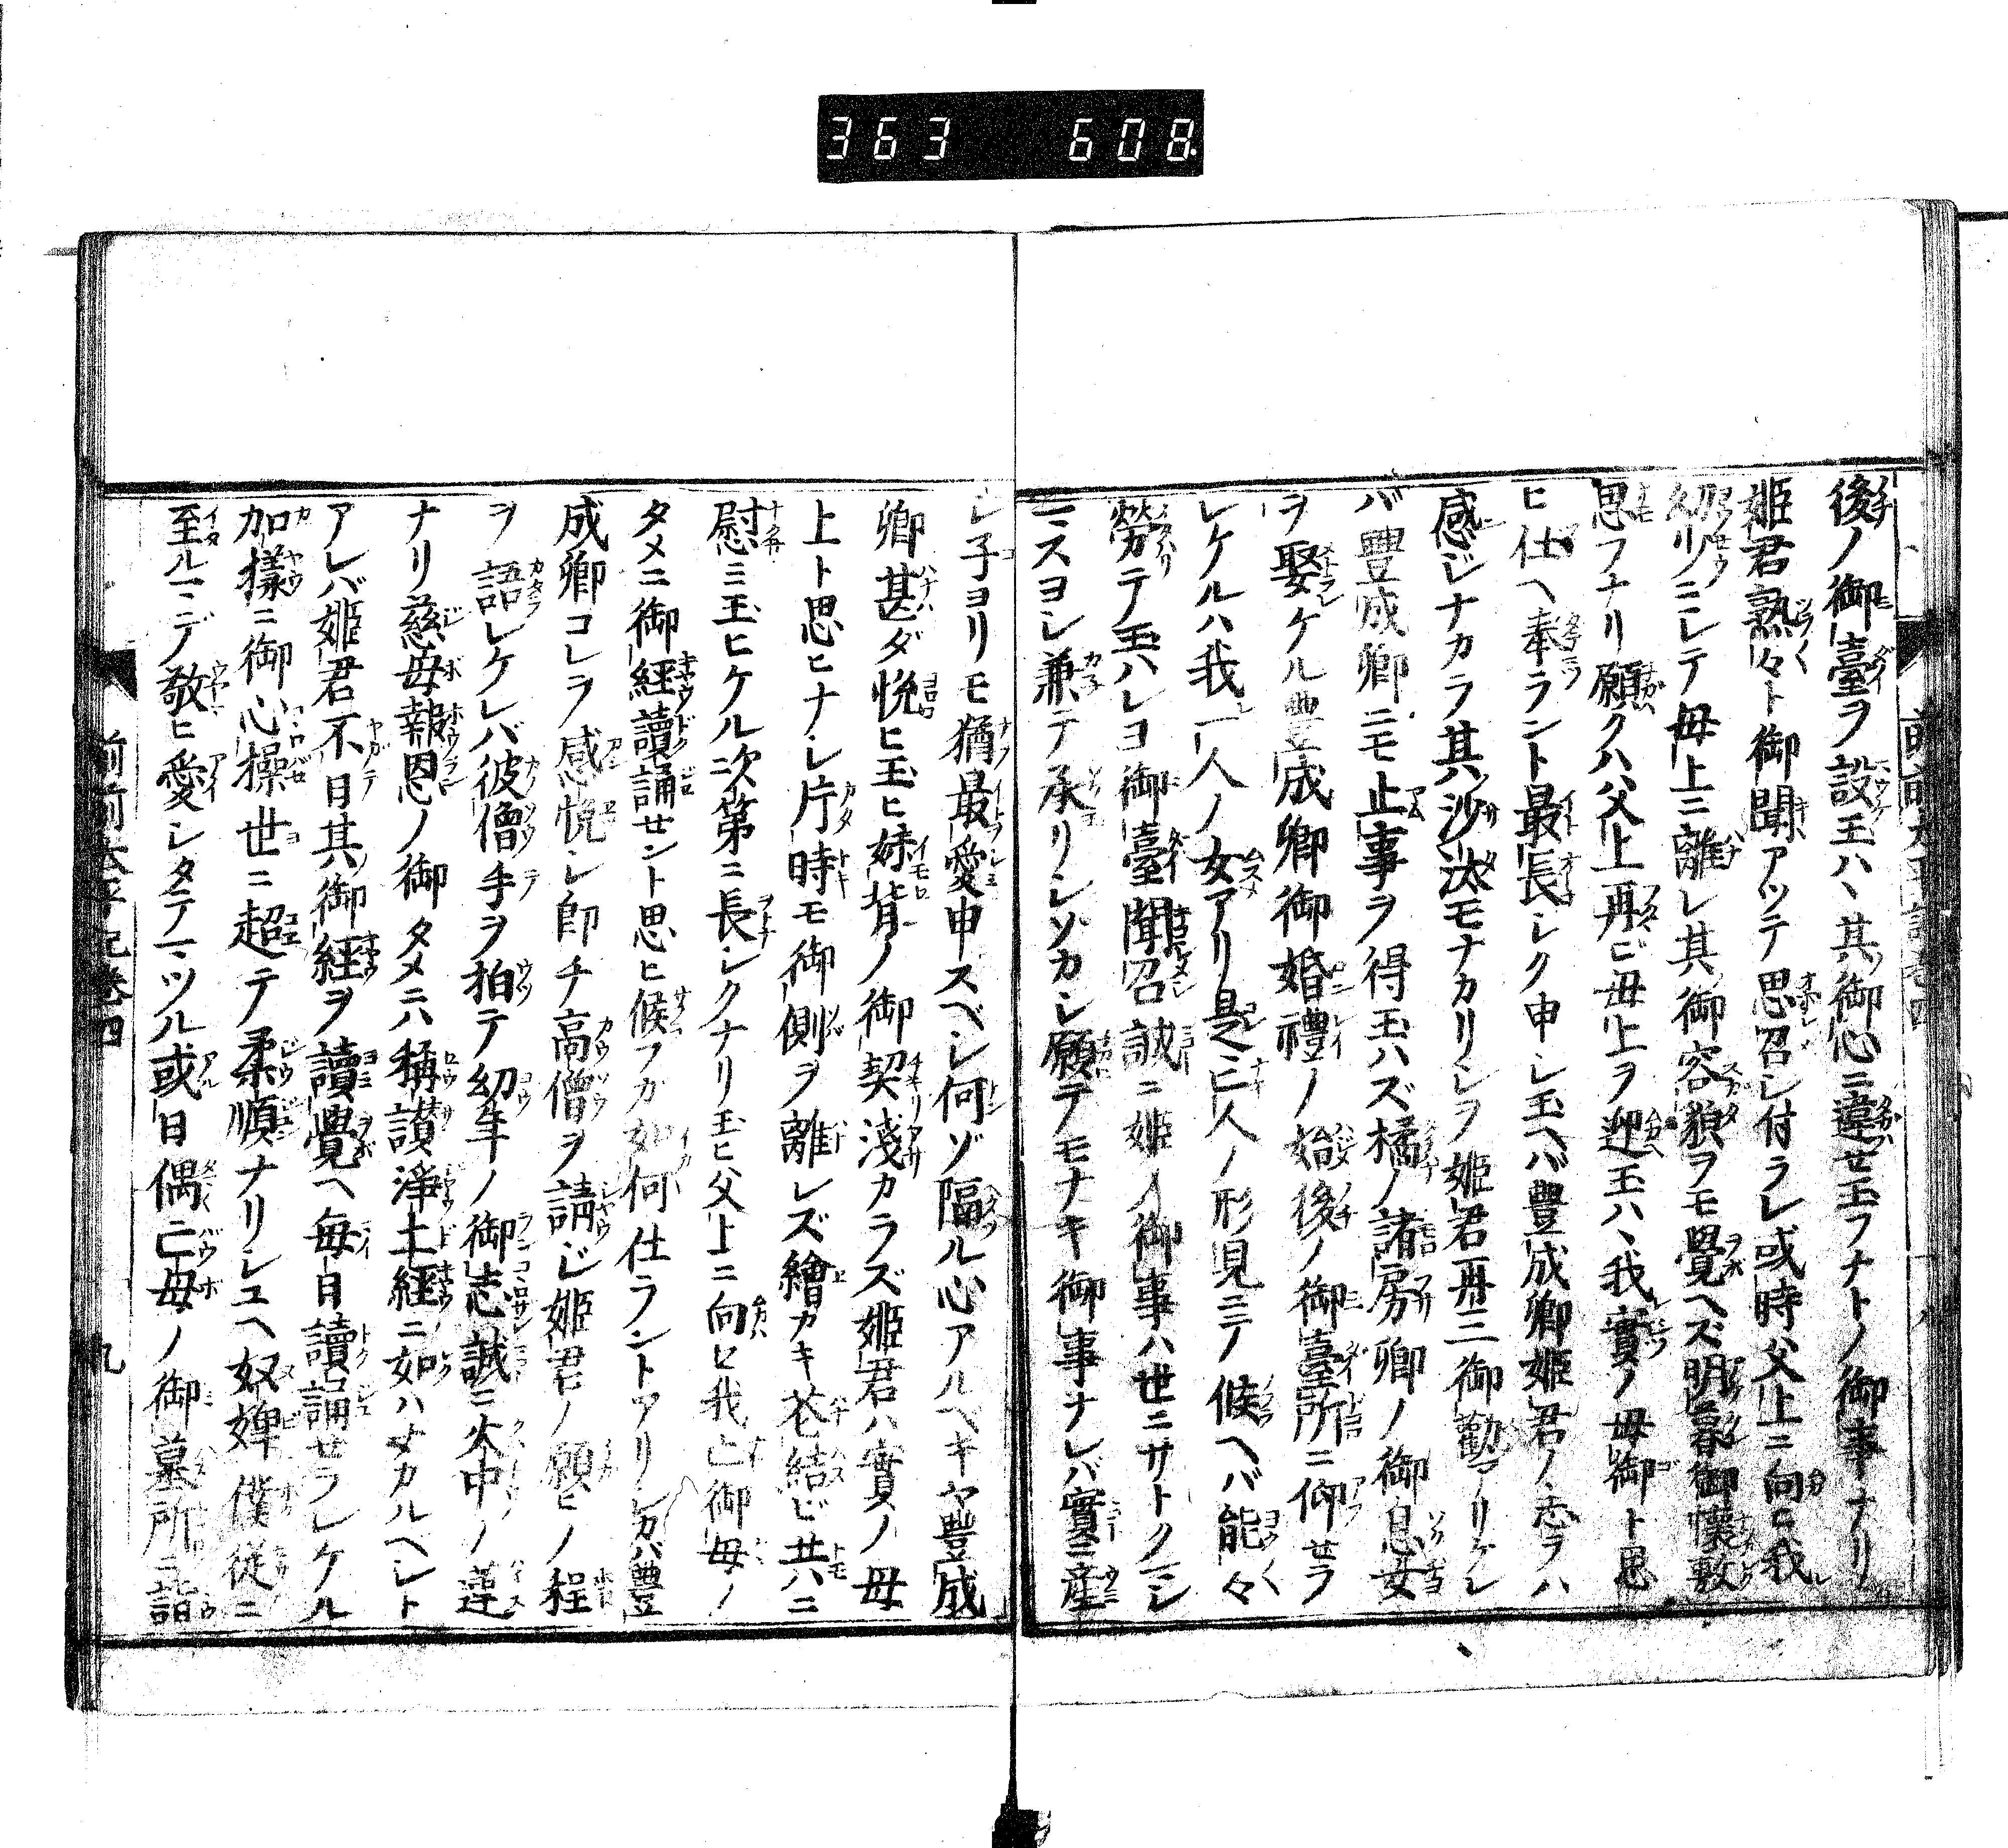 363 608
後ノ御臺ヲ設玉ハヽ其御心ニ違セ玉フナトノ御事ナリ
姫君熟々ト御聞アツテ思召シ付ラレ或時父上ニ向ヒ我
幼リニシテ母上ニ離レ其御容貌ヲモ覺ヘズ明暮御懷敷
思フナリ願クハ父上再ビ母上ヲ迎玉ハヽ我實ノ母御ト思
ヒ仕ヘ奉ラント最長シク申シ玉ヘバ豊成卿姫君ノ志ヲハ
感ジナカラ其沙汰モナカリシヲ姫君再三御勸アリケレ
バ豊成卿ニモ止事ヲ得玉ハズ橘ノ諸房卿ノ御息女
ヲ娶ケル豊成卿御婚禮ノ始後ノ御臺所ニ仰セラ
レケルハ我一人ノ女アリ是亡人ノ形見ニテ候ヘバ能々
勞カテ玉ハレヨ御臺聞召誠ニ姫ノ御事ハ世ニサトクマシ
マスヨシ兼テ承リシゾカシ願テモナキ御事ナレバ實ニ産
シ子ヨリモ猶最愛申スベシ何ゾ隔ル心アルヘキヤ豊成
卿甚ダ悦ヒ玉ヒ妹背ノ御契淺カラズ姫君ハ實ノ母
上ト思ヒナシ片時モ御側ヲ離レズ繪カキ花結ビ共ハニ
慰ミ玉ヒケル次第ニ長シクナリ玉ヒ父上ニ向ヒ我亡御母ノ
タメニ御經讀誦セント思ヒ候フガ如何仕ラントツリシカバ豊
成卿コレヲ感悦シ即チ高僧ヲ請ジ姫君ノ願ヒノ程
ヲ語レケレバ彼僧手ヲ拍テ幼年ノ御志誠ニ火中ノ蓮
ナリ慈母報恩ノ御タメニハ稱讃浄土経ニ如ハナカルヘシト
アレバ姫君不日其御経ヲ讀覺ヘ毎日讀誦セラレケル
加樣ニ御心操世ニ超テ柔順ナリシユヘ奴婢僕從ニ
至ルマデ敬ヒ愛シタテマツル或日偶亡母ノ御墓所ニ詣
前前太平記卷四
九